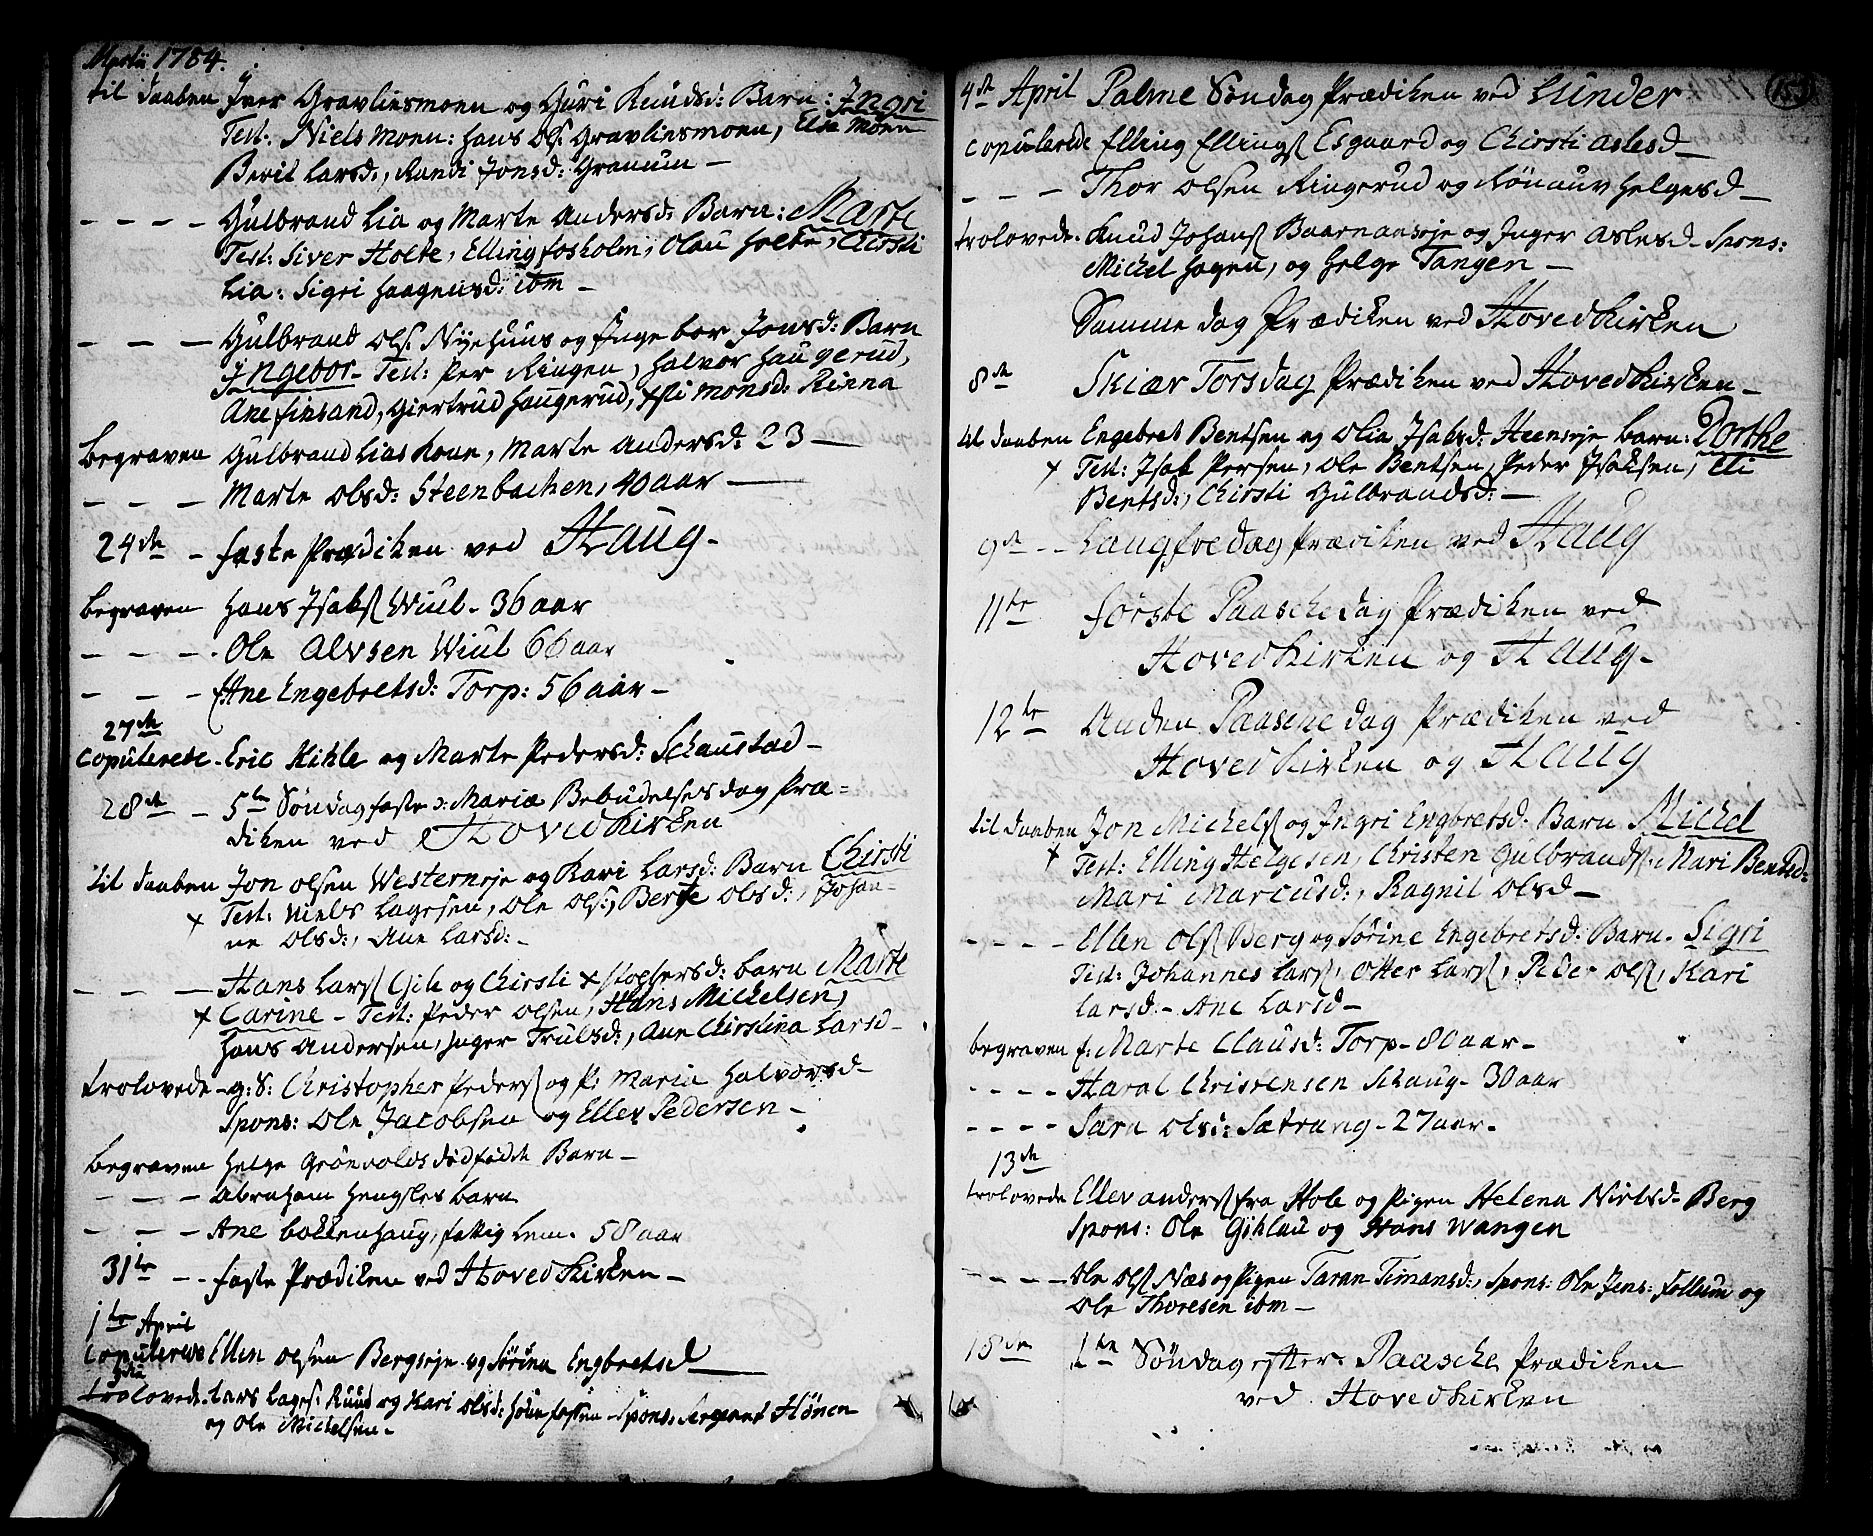 Martii 1784.
til daaben Iver Gravliesmoen og Guri Knudsd: Barn: Ingri
Test: Niels Moen: Hans Ols: Gravliesmoen, Else Moen
Berit Larsd:, Randi Jonsd: Granum —
— — — — Gulbrand Lia og Marte Andersd: Barn: Marte
Test: Siver Holte, Elling Fosholm, Olau Holte, Chirsti
Lia: Sigri Haagensd: ibm —
— — — Gulbrand Ols: Nyehuus og Ingebor Jonsd: Barn
Ingebor — Test: Per Ringen, Halvor Haugerud,
Ane Finsand, Giertrud Haugerud, Monsd: Rinna
Begraven Gulbrand Lias Kone, Marte Andersd: 23 —
— — — Marte Olsd: Steenbachen, 40 aar —
24de — Faste Prædiken ved Haug —
Begraven Hans Isaks: Wiul — 36 aar
— — — Ole Alvsen Wiul 66 aar
— — — Ane Engebretsd: Torp: 56 aar —
27de
Copulerede — Eric Kihle og Marte Pedersd: Schaustad —
28de — 5te Søndag faste ɔ: Mariæ Bebudelses dag Præ=
diken ved Hovedkirken
til daaben Jon Olsen Westerneie og Kari Larsd: Barn Chirsti
x Test: Niels Lagesen, Ole Ols:, Berte Olsd:, Johan-
ne Olsd:, Ane Larsd: —
— — — Hans Lars: Gile og Chirsti xstophersd: barn Marte
x Carine — Test: Peder Olsen, Hans Michelsen,
Hans Andersen, Inger Trulsd:, Ane Chirstina Larsd —
trolovede — g: S: Christopher Peders: og P: Maria Halvorsd —
Spons: Ole Jacobsen og Ellev Pedersen —
Begraven Helge Grönvolds dødfödde Barn —
— — — Abraham Hengsles barn
— — — Ane bakkenhaug, fattig lem. 58 aar
31te — — Faste Prædiken ved Hovedkirken —
1te April
Copulerede Ellen Olsen Bergseie og Sörina Engbretsd —
trolovede. Lars Lages: Ruud og Kari Olsd: — Spons: Sergeant Hönen
og Ole Michelsen —
153
4de April Palme Søndag Prædiken ved Lunder
copulerede Elling Ellings: Esgaard og Chirsti Aslesd —
— — — Thor Olsen Ringerud og Rönnuv Helgesd —
trolovede. Knud Johans: Baarnaaseie og Inger Aslesd — Spons:
Michel Hagen, og Helge Tangen —
Samme dag Prædiken ved Hovedkirken
8de Skiær Torsdag Prædiken ved Hovedkirken —
til daaben Engebret Bentsen og Olia Isaksd: Heenseie barn: Dorthe
x Test: Isak Persen, Ole Bentsen, Peder Isaksen, Eli
Bentsd:, Chirsti Gulbrandsd: —
9de — — Langfredag Prædiken ved Haug
11te Første Paaschedag Prædiken ved
Hovedkirken og Haug —
12te Anden Paaschedag Prædiken ved
Hovedkirken og Haug
til daaben Jon Michels: og Ingri Engbretsd: Barn Michel
x Test: Elling Helgesen, Christen Gulbrands: Mari Bentsd:
Mari Marcusd:, Ragnil Olsd —
— — — — Ellen Ols: Berg og Sörine Engebretsd: Barn. Sigri
Test: Johannes Lars:, Otter Lars:, Peder Ols:, Kari
Larsd — Ane Larsd —
begraven f: Marte Clausd: Torp — 80 aar —
— — — — Haral Christensen Schaug — 30 aar
— — — — Sara Olsd: Sætrang — 27 aar —
13de
trolovede Ellev Anders: fra Hole og Pigen Helena Nielsd — Berg
Spons: Ole Gihlau og Hans Wangen
— — — — Ole Ols: Næs og Pigen Taran Timansd:, Spons: Ole Jens: Follum og
Ole Thoresen ibm —
18de 1te Søndag efter Paasche Prædiken
ved Hovedkirken